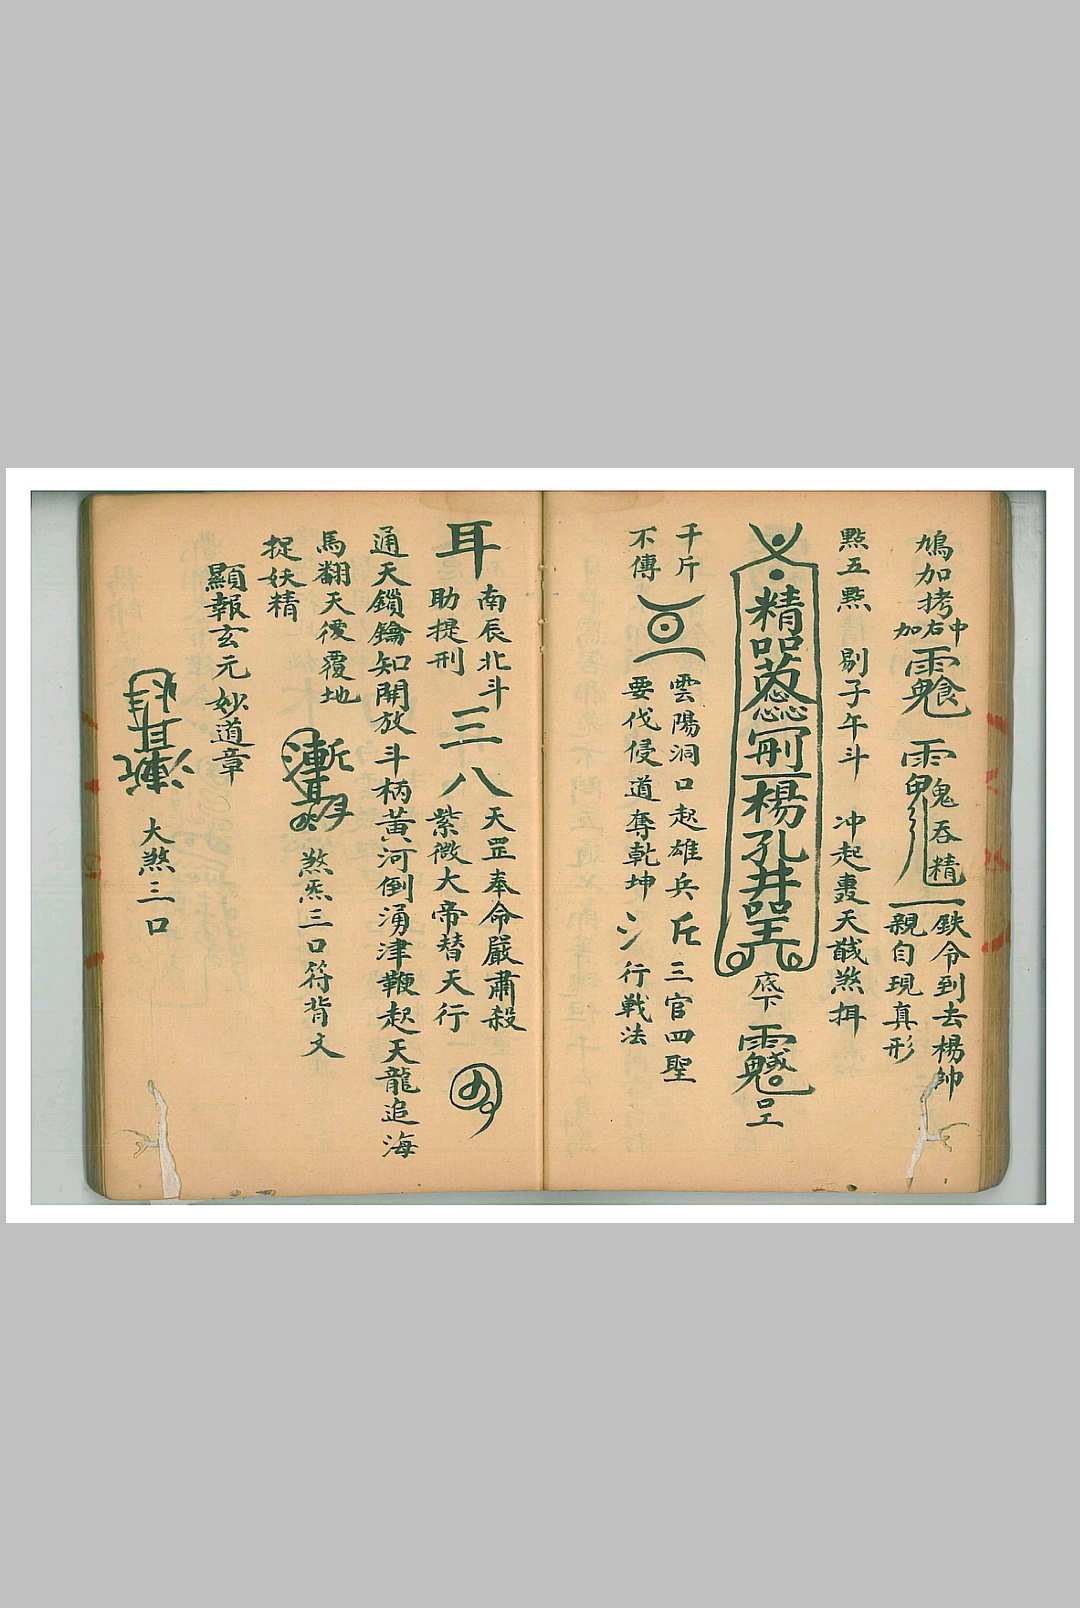 鳩加拷
中右加
雨鬼吞精
鉄令到去楊帥
親自現真形
點五點 剔子午斗 冲起 天 煞
精
楊孔井
底下
口工
千斤
不傳
雲陽洞口起雄兵
要伐侵道奪乾坤
三官四聖
行戦法
耳
南辰北斗
助提刑
三八
天罡奉命嚴肅殺
紫微大帝替天行
通天鎖鑰知開放斗柄黃河倒湧津鞭起天龍追海
馬翻天復覆地
煞炁三口符背文
捉妖精
顯報玄元妙道章
大煞三口